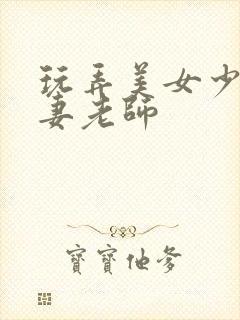 玩弄美女少
妻老师
寶寶他爹